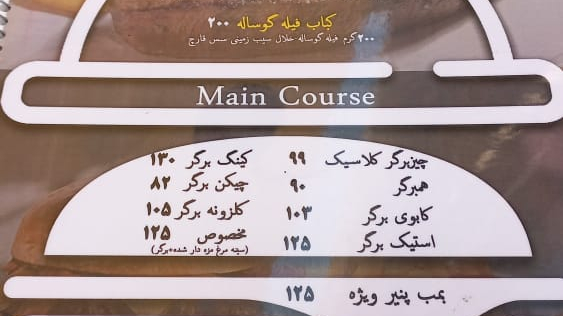 کباب فیله گوساله ۲۰۰
۲۰۰گرم فیله گوساله خلال سیب زمینی سس قارچ
Main Course
چیزبرگر کلاسیک ۹۹
همبرگر ۹۰
کابوی برگر ۱۰۳
استیک برگر ۱۲۵
کینگ برگر ۱۳۰
چیکن برگر ۸۲
کلزونه برگر ۱۰۵
مخصوص ۱۲۵
(سینه مرغ مزه دار شده+برگر)
بمب پنیر ویژه ۱۲۵